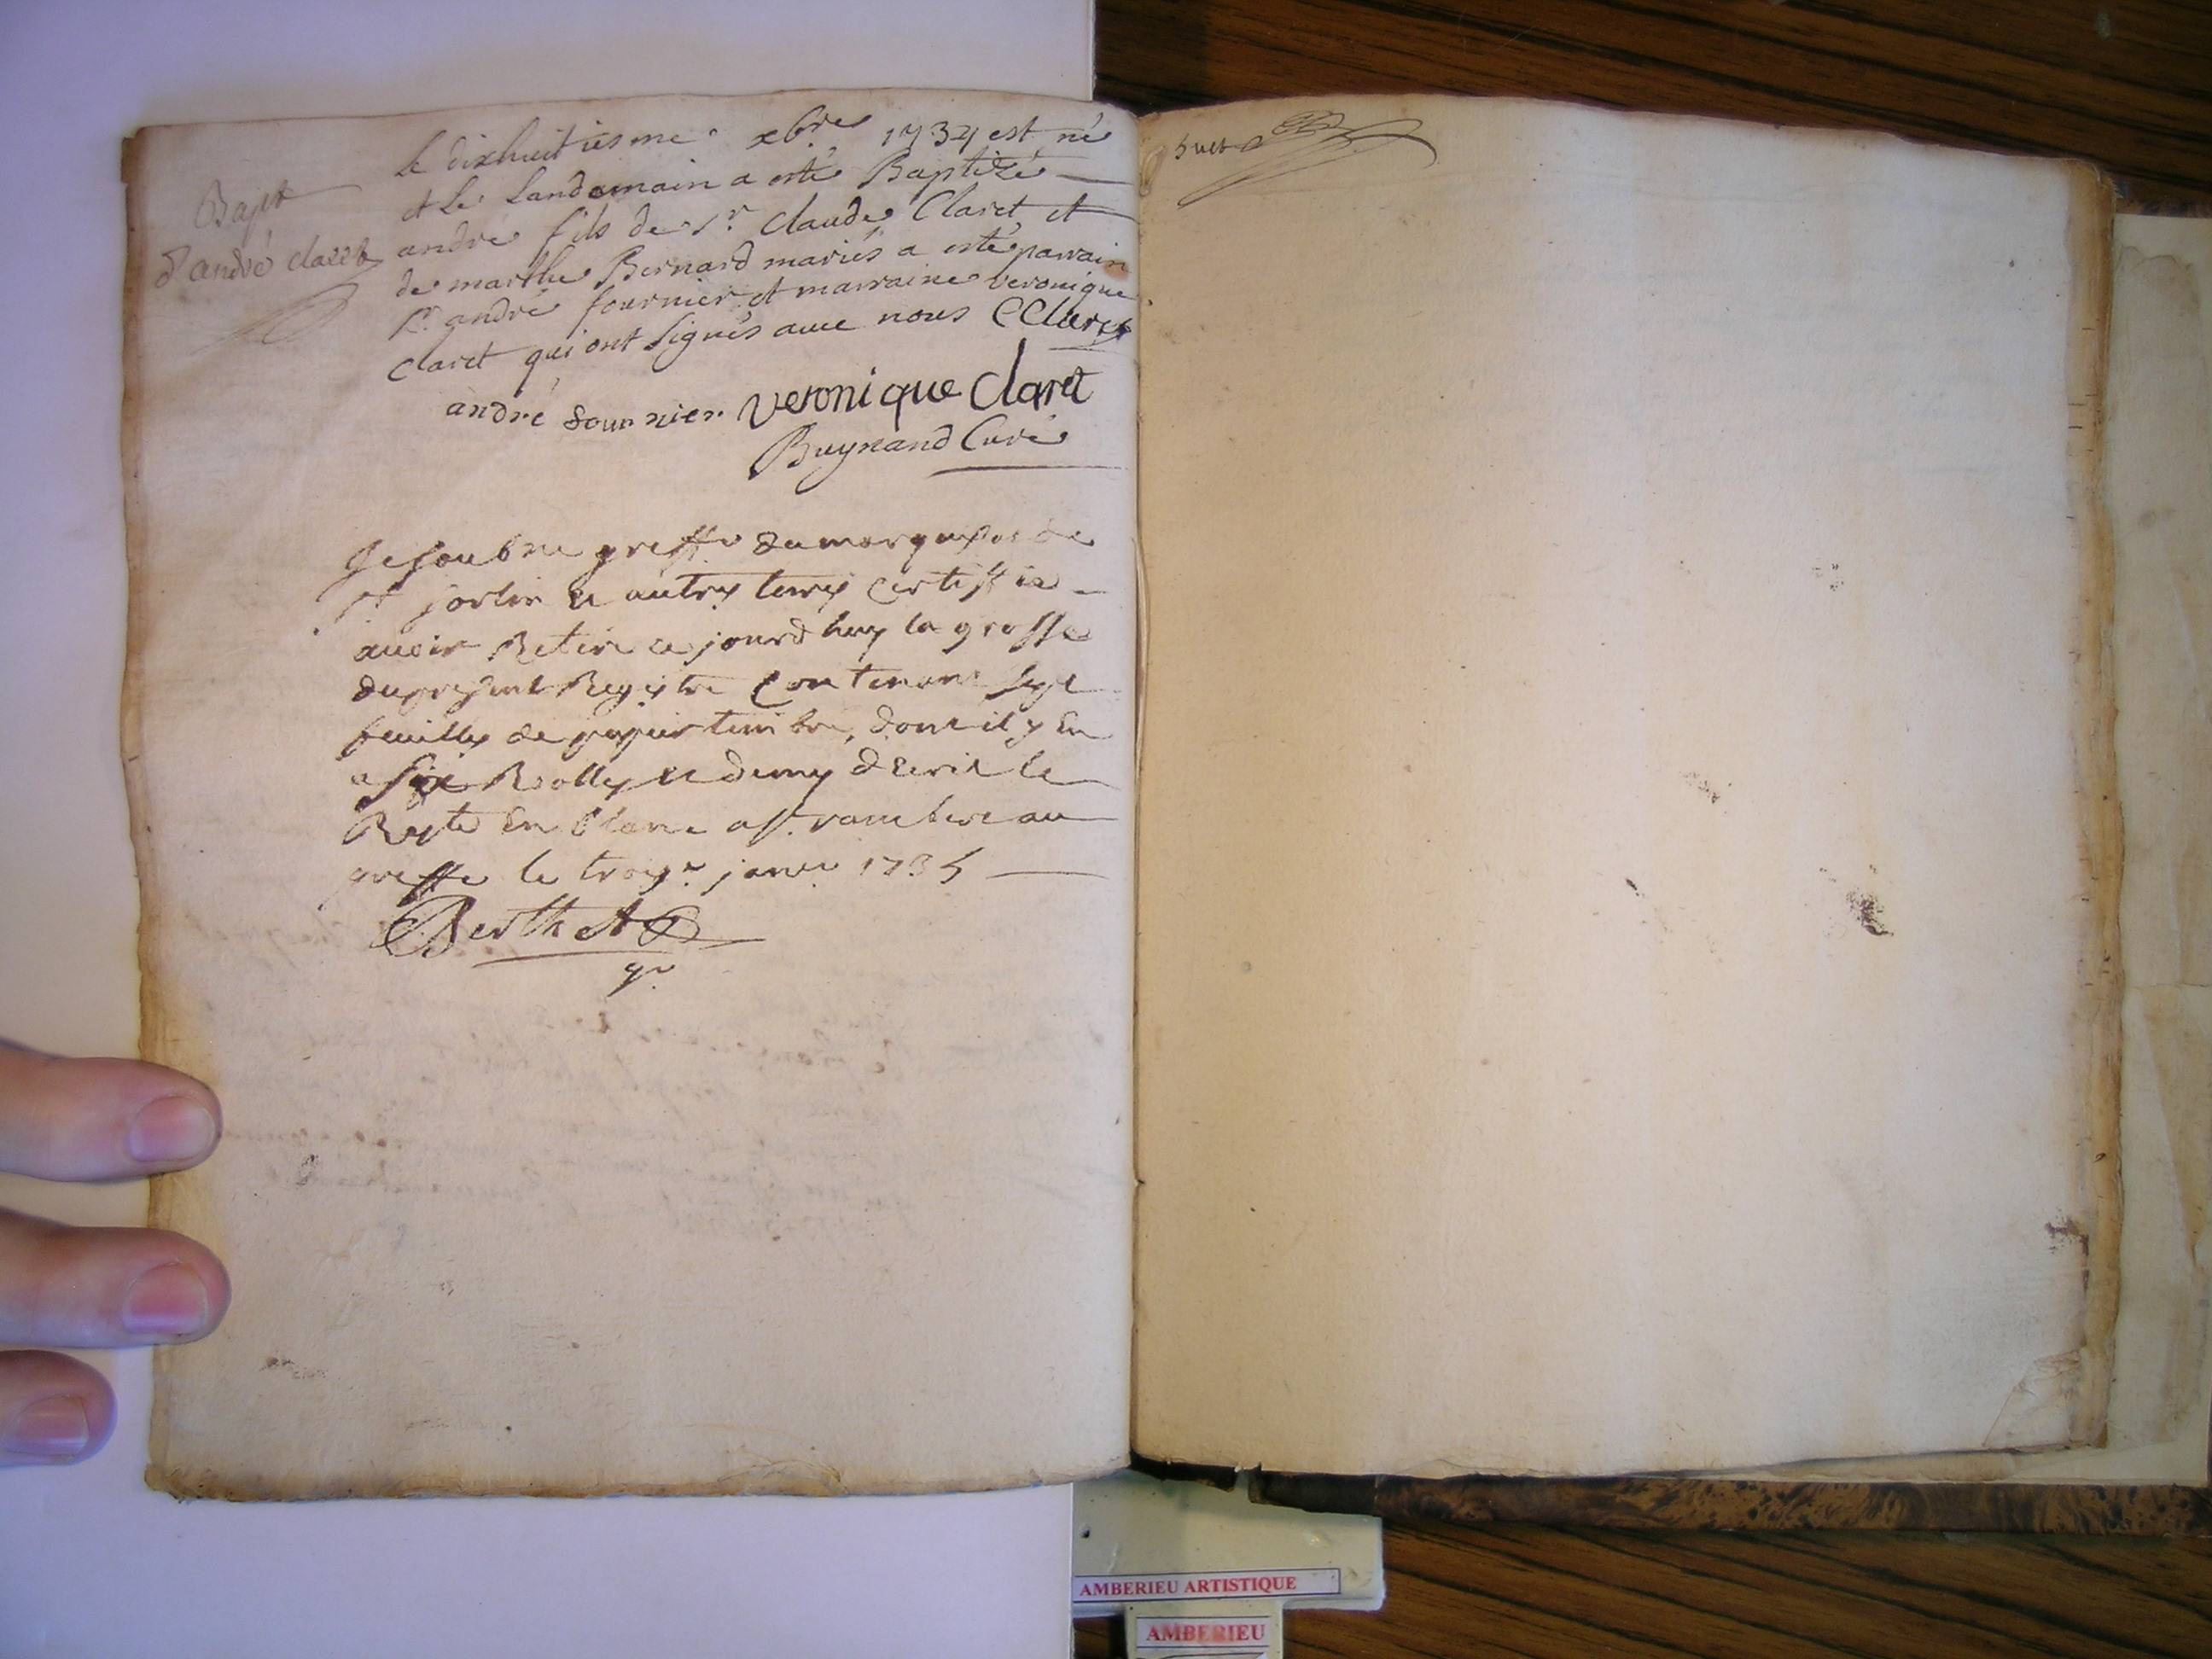 Bapt
d'andré claret
le dixhuitiesme xbre 1734 est né
et le Landemain a esté Baptizé
andre fils de Sr. Claude Claret et
de marthe Bernard mariés a esté parrain
Sr. andré fournier et marraine veronique
Claret qui ont signés avec nous CClaret
andré fournier veronique Claret
Buynand Curé
Je soubne greffr du marquisat de
St jorlin et autres terres certiffie
avoir Retiré ce jourdhuy la grosse
du present Registre Contenant sept
feuilles de papier timbré, dont il y en
a six Rolles et demy d'Ecrit le
Reste en blanc a St. rambert au
greffe le troisr. janvr. 1735
Berthet
gr.
5 uct
AMBERIEU ARTISTIQUE
AMBERIEU